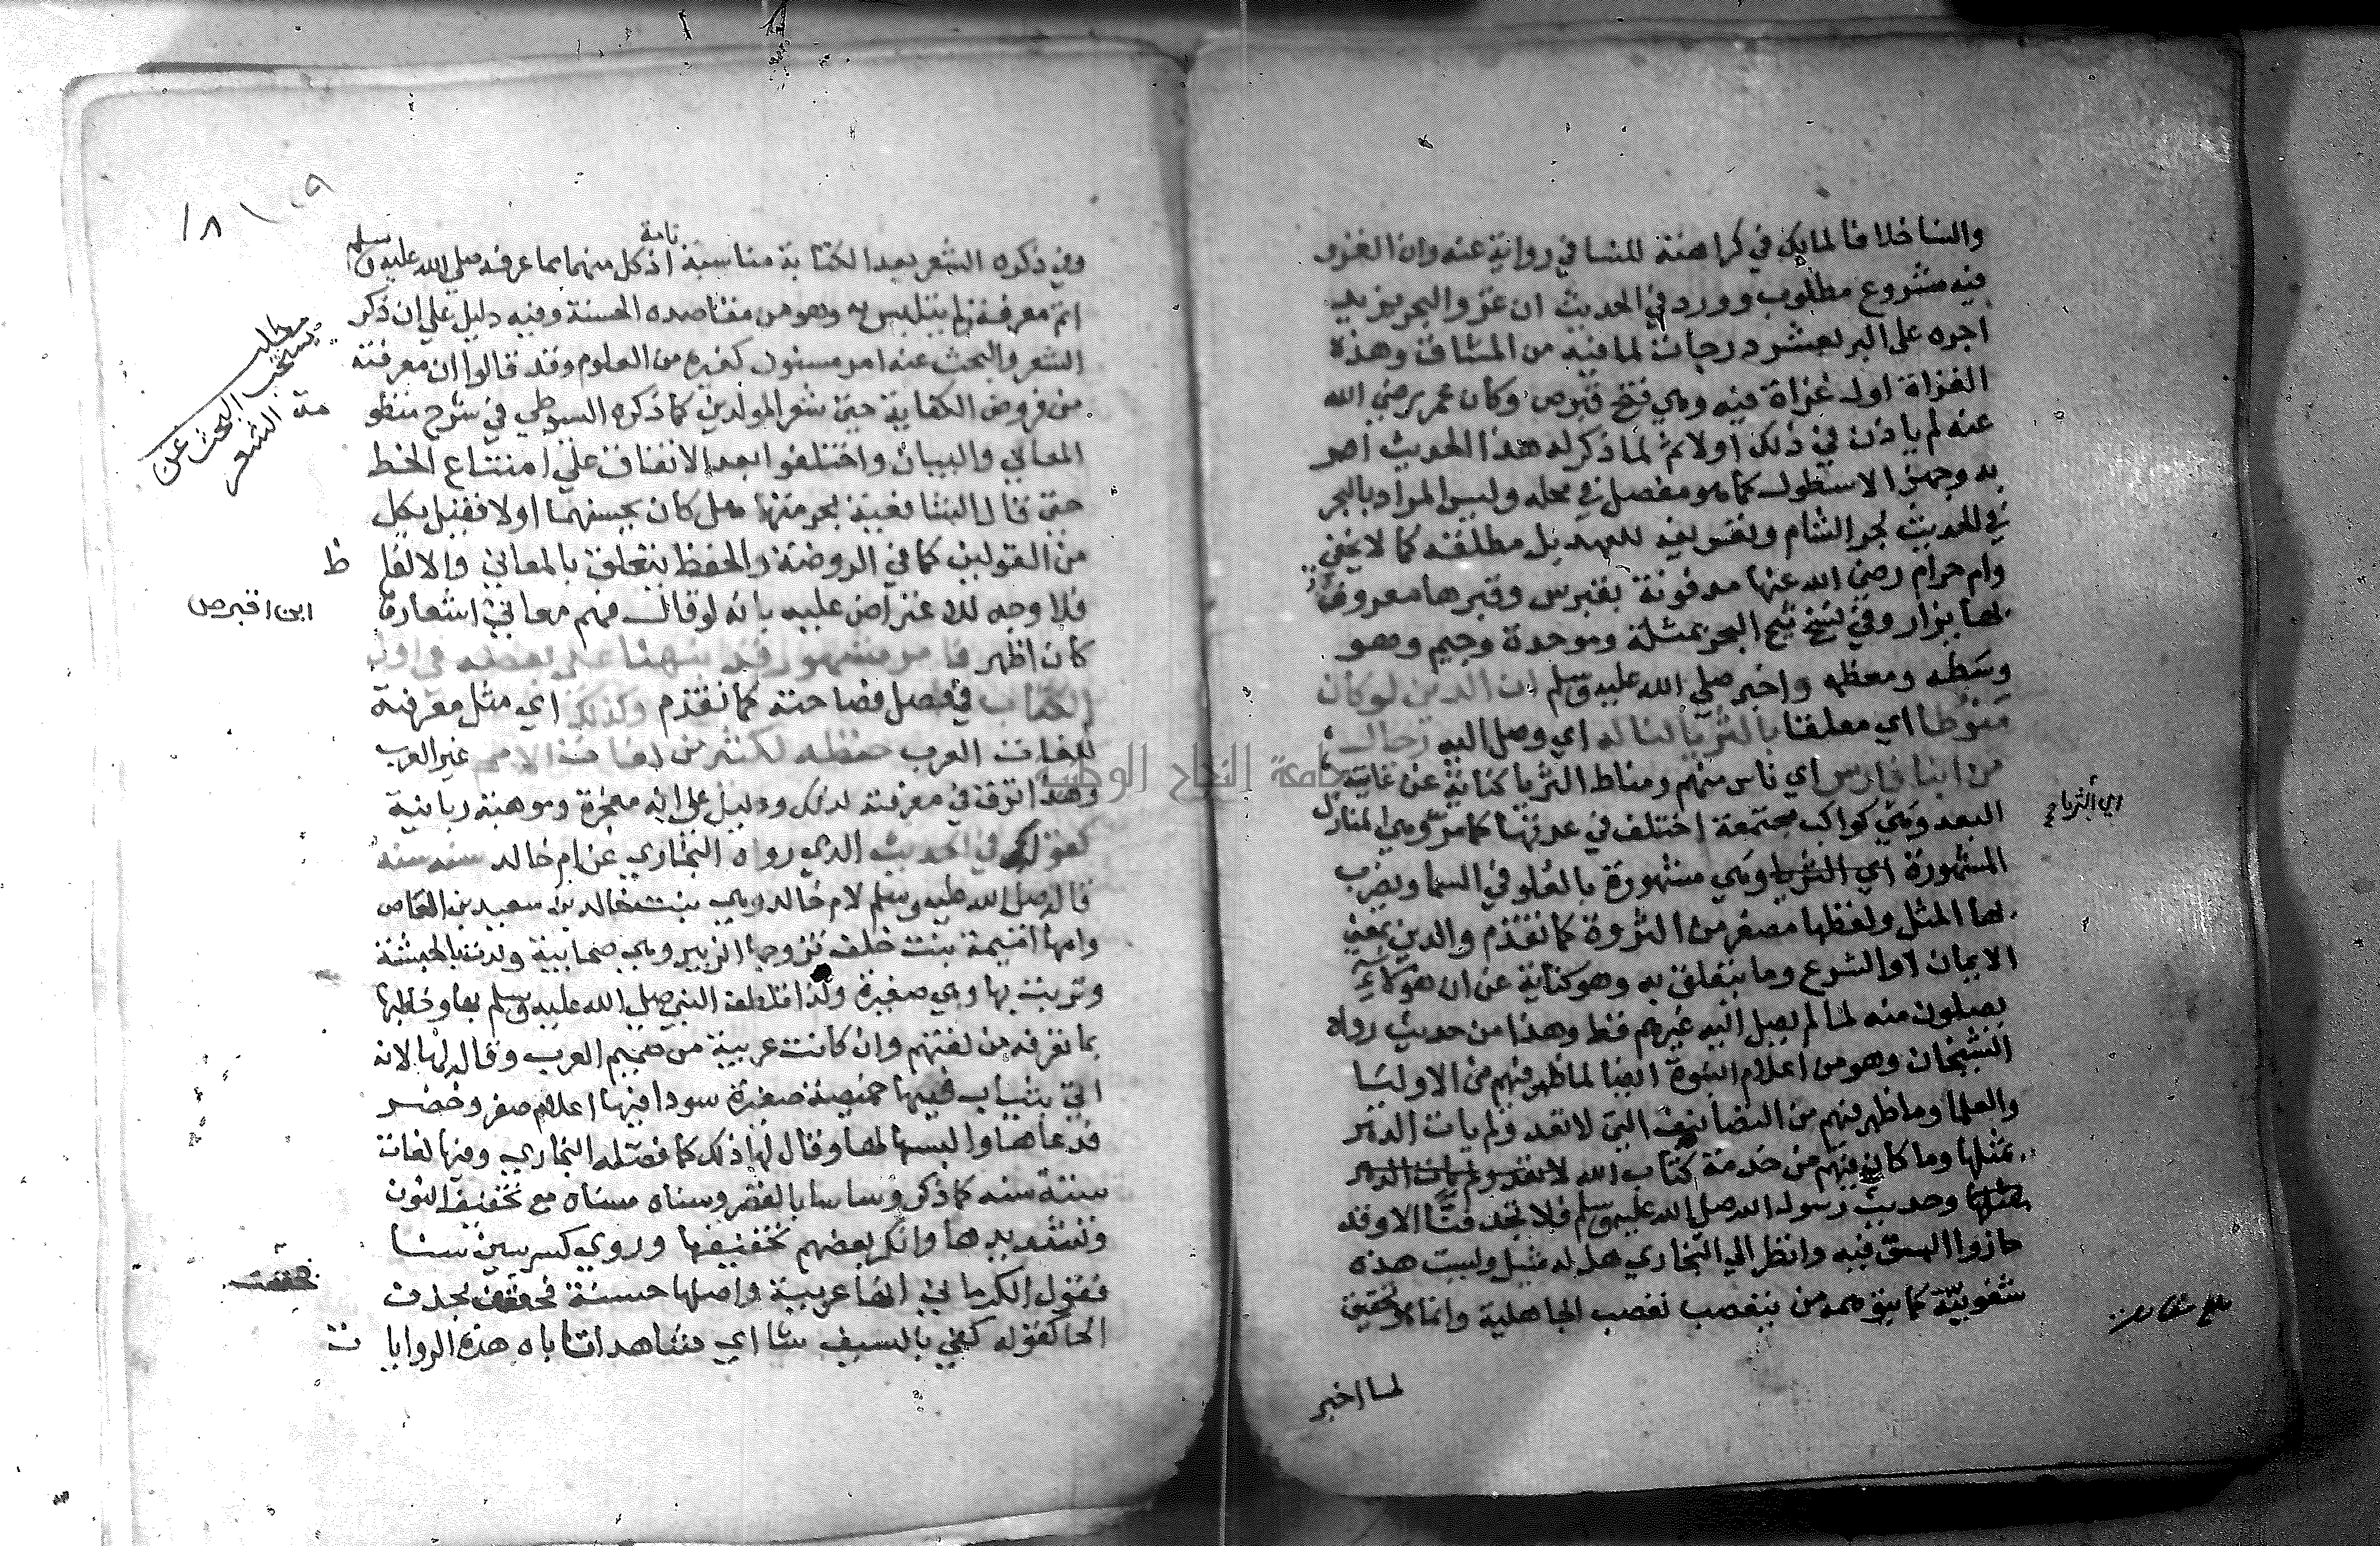 والنساء خلافا لمالك في كراهته للنسا في رواية عنه وان الغزو
فيه مشروع مطلوب وورد في الحديث ان غزو البحر يزيد
اجره على البر بعشر درجات لما فيه من المشاق وهذه
الغزاة اول غزاة فيه وهي فتح قبرص وكان عمر رضي الله
عنه لم ياذن في ذلك اولا ثم لما ذكر له هذا الحديث امر
به وجهز الاسطول كما هو مفصل في محله وليس المراد بالبحر
في الحديث بحر الشام وتعريفه للعهد بل مطلقه كما لا يخفى
وام حرام رضي الله عنها مدفونة بقبرس وقبرها معروف
بها يزار وفي نسخ ثبج البحر بمثلثة وموحدة وجيم وهو
وسطه ومعظمه واخبر صلى الله عليه وسلم ان الدين لو كان
منوطا اي معلقا بالثريا لناله اي وصل اليه رجال
من ابنا فارس اي ناس منهم ومناط الثريا كناية عن غاية
البعد وهي كواكب مجتمعة اختلف في عدتها كما مر وهي المنازل
اي الثريا
المشهورة اي الثريا وهي مشهورة بالعلو في السما ويضرب
بها المثل ولفظها مصغر من الثروة كما تقدم والدين بمعنى
الايمان او الشرع وما يتعلق به وهو كناية عن ان هؤلاء
يصلون منه لما لم يصل اليه غيرهم قط وهذا من حديث رواه
الشيخان وهو من اعلام النبوة ايضا لما ظهر فيهم من الاوليا
والعلما وما ظهر فيهم من التصانيف التي لا تعد ولم يات الدهر
بمثلها وما كان فيهم من خدمة كتاب الله لا تعد ولم يات الدهر
بمثلها وحديث رسول الله صلى الله عليه وسلم فلا تجد فنا الا وقد
حازوا السبق فيه وانظر الى البخاري هل له مثيل وليست هذه
شعوبية كما يتوهمه من يتعصب تعصب الجاهلية وانما هو تحقيق
لما اخبر
١٨
وفي ذكره الشعر بعد الكتابة مناسبة تامة اذ كل منهما مما عرفه صلى الله عليه وسلم
اتم معرفة ولم يتلبس به وهو من مقاصده الحسنة وفيه دليل على ان ذكر
مطلب
يستحب البحث عن
الشعر
الشعر والبحث عنه امر مسنون كغيره من العلوم وقد قالوا ان معرفته
من فروض الكفاية حتى شعر المولدين كما ذكره السيوطي في شرح منظو مة
المعاني والبيان واختلفوا بعد الاتفاق على امتناع الخط
حتى قال الشافعية بحرمتها هل كان يحسنهما اولا فقيل بكل
من القولين كما في الروضة والحفظ يتعلق بالمعاني والالفا ظ
فلا وجه للاعتراض عليه بانه لو قال فهم معاني اشعارها
ابن اقبرص
كان اظهر فا مر مشهور قد نبهنا على بعضه في اول
الكتاب في فصل فصاحته كما تقدم وكذلك اي مثل معرفته
للغات العرب حفظه لكثير من لغات الامم غير العرب
وهذا ترق في معرفته لذلك ودليل على انه معجزة وموهبة ربانية
كقوله في الحديث الذي رواه البخاري عن ام خالد سنه سنه
قاله صلى الله عليه وسلم لام خالد وهي بنت خالد بن سعيد بن العاص
وامها اميمة بنت خلف تزوجها الزبير وهي صحابية ولدت بالحبشة
وتربت بها وهي صغيرة ولذا تلطف النبي صلى الله عليه وسلم بها وخاطبها
بما تعرفه من لغتهم وان كانت عربية من صميم العرب وقاله لها لانه
اتي بثياب فيها خميصة صغيرة سودا فيها اعلام صفر وخضر
فدعاها والبسها لها وقال لها ذلك كما فصله البخاري وفيها لغات
سنة سنه كما ذكر وسا سا بالقصر وسناه سناه مع تخفيف النون
وتشديدها وانكر بعضهم تخفيفها وروي كسر سين سنا
فقول الكرماني انها عربية واصلها حسنة فخففت بحذف
فخففت
الحا كقوله كفى بالسيف شا اي شاهدا تاباه هذه الروايا ت
جامعة النجاح الوطنية